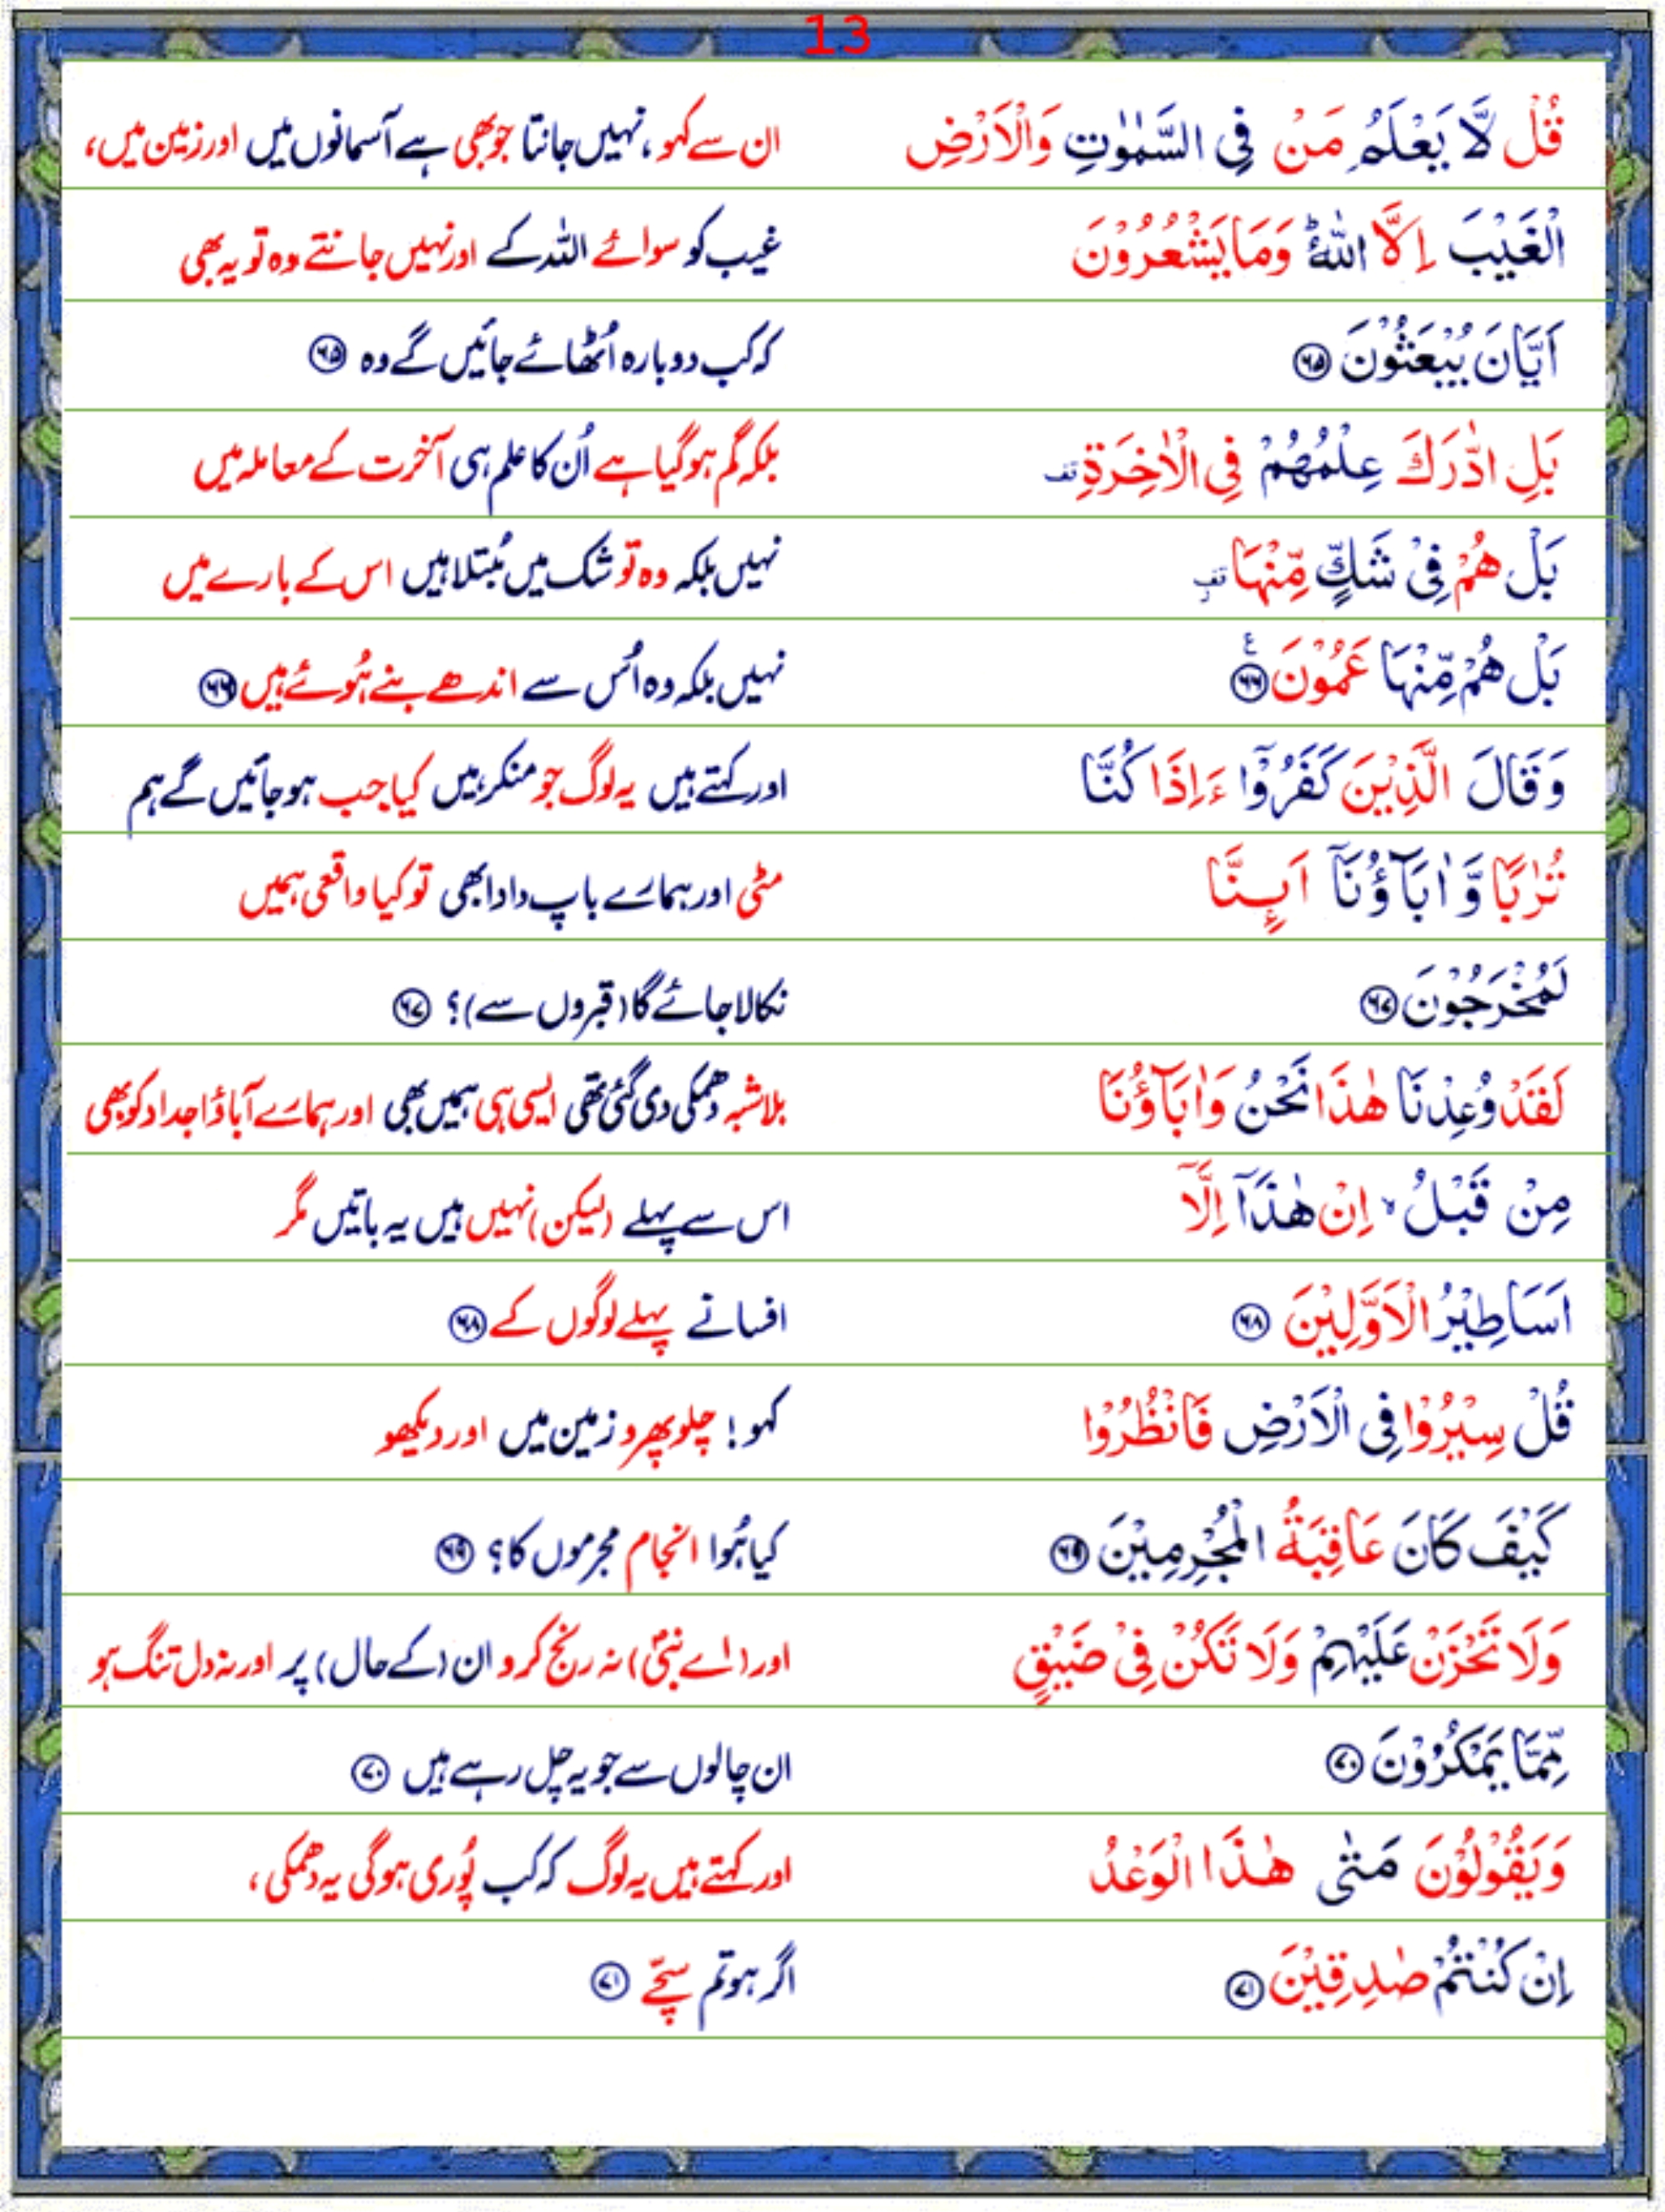 13
قُلْ لَّا يَعْلَمُ مَنْ فِى السَّمٰوٰتِ وَالْاَرْضِ ان سے کہو، نہیں جانتا جو بھی ہے آسمانوں میں اور زمین میں،
الْغَيْبَ اِلَّا اللّٰهُ ؕ وَمَا يَشْعُرُوْنَ غیب کو سوائے اللہ کے اور نہیں جانتے وہ تو یہ بھی
اَيَّانَ يُبْعَثُوْنَ ۶۵ کہ کب دوبارہ اُٹھائے جائیں گے وہ ۶۵
بَلِ ادّٰرَكَ عِلْمُهُمْ فِى الْاٰخِرَةِ قف بلکہ گم ہو گیا ہے اُن کا علم ہی آخرت کے معاملہ میں
بَلْ هُمْ فِىْ شَكٍّ مِّنْهَا قف نہیں بلکہ وہ تو شک میں مُبتلا ہیں اس کے بارے میں
بَلْ هُمْ مِّنْهَا عَمُوْنَ ۶۶ ع نہیں بلکہ وہ اُس سے اندھے بنے ہُوئے ہیں ۶۶
وَقَالَ الَّذِيْنَ كَفَرُوْۤا ءَاِذَا كُنَّا اور کہتے ہیں یہ لوگ جو منکر ہیں کیا جب ہو جائیں گے ہم
تُرٰبًا وَّاٰبَآؤُنَاۤ اَىِٕنَّا مٹی اور ہمارے باپ دادا بھی تو کیا واقعی ہمیں
لَمُخْرَجُوْنَ ۶۷ نکالا جائے گا (قبروں سے)؟ ۶۷
لَقَدْ وُعِدْنَا هٰذَا نَحْنُ وَاٰبَآؤُنَا بلاشبہ دھمکی دی گئی تھی ایسی ہی ہمیں بھی اور ہمارے آباؤ اجداد کو بھی
مِنْ قَبْلُ ۙ اِنْ هٰذَاۤ اِلَّاۤ اس سے پہلے (لیکن) نہیں ہیں یہ باتیں مگر
اَسَاطِيْرُ الْاَوَّلِيْنَ ۶۸ افسانے پہلے لوگوں کے ۶۸
قُلْ سِيْرُوْا فِى الْاَرْضِ فَانْظُرُوْا کہو! چلو پھرو زمین میں اور دیکھو
كَيْفَ كَانَ عَاقِبَةُ الْمُجْرِمِيْنَ ۶۹ کیا ہُوا انجام مجرموں کا؟ ۶۹
وَلَا تَحْزَنْ عَلَيْهِمْ وَلَا تَكُنْ فِىْ ضَيْقٍ اور (اے نبیؐ) نہ رنج کرو ان (کے حال) پر اور نہ دل تنگ ہو
مِّمَّا يَمْكُرُوْنَ ۷۰ ان چالوں سے جو یہ چل رہے ہیں ۷۰
وَيَقُوْلُوْنَ مَتٰى هٰذَا الْوَعْدُ اور کہتے ہیں یہ لوگ کہ کب پُوری ہو گی یہ دھمکی،
اِنْ كُنْتُمْ صٰدِقِيْنَ ۷۱ اگر ہو تم سچّے ۷۱